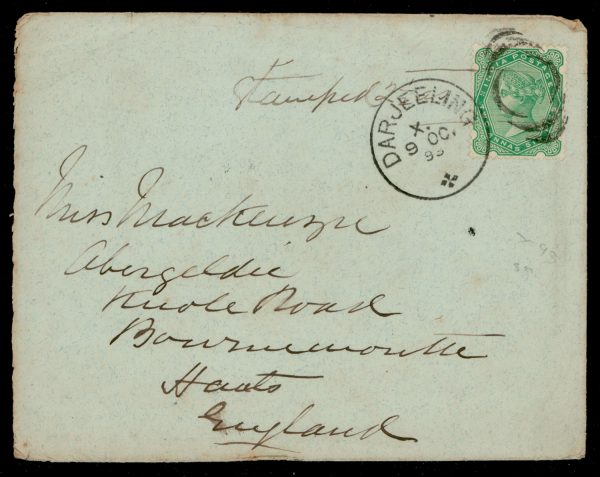 Stamped
INDIA POSTAGE
DARJEELING
X.
9 OC.
Miss Mackenzie
Abergeldie
Knole Road
Bournemouth
Hants
England